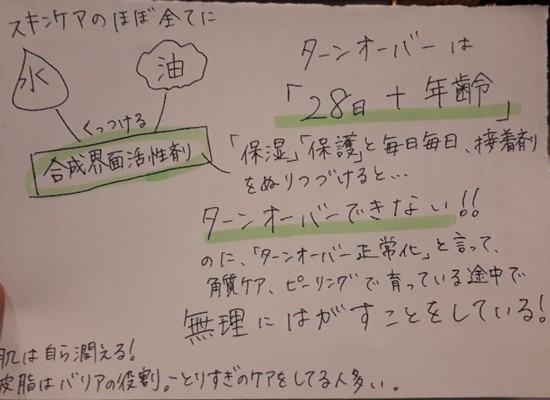 スキンケアのほぼ全てに
水
油
くっつける
合成界面活性剤
ターンオーバーは
「28日+年齢」
「保湿」「保護」と毎日毎日、接着剤
をぬりつづけると…
ターンオーバーできない!!
のに、「ターンオーバー正常化」と言って、
角質ケア、ピーリングで育っている途中で
無理にはがすことをしている!
肌は自ら潤える!
皮脂はバリアの役割。とりすぎのケアをしてる人多い。